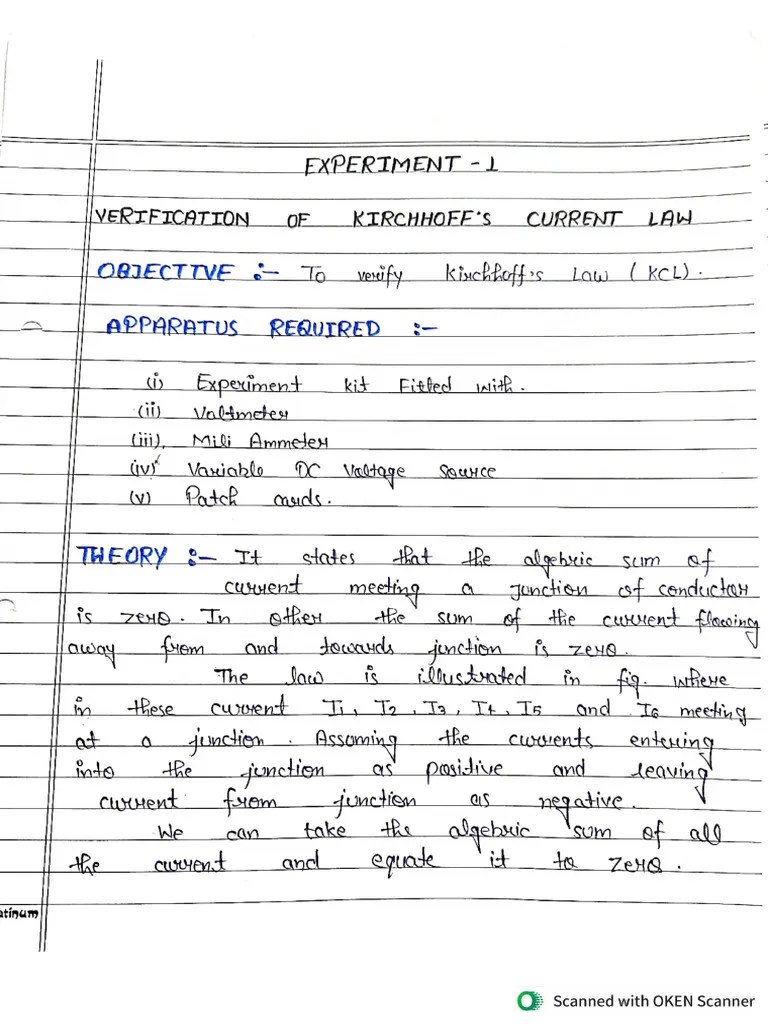 EXPERIMENT - 1
VERIFICATION OF KIRCHHOFF'S CURRENT LAW
OBJECTIVE :- To verify Kirchhoff's Law (KCL).
APPARATUS REQUIRED :-
(i) Experiment kit Fitled with.
(ii) Valtmeter
(iii) Mili Ammeter
(iv) Variable DC Voltage Source
(v) Patch cards.
THEORY :- It states that the algebric sum of
current meeting a junction of conductor
is zero. In other the sum of the current flowing
away from and towards junction is zero.
The law is illustrated in fig. where
in these current I1, I2, I3, I4, I5 and I6 meeting
at a junction. Assuming the currents entering
into the junction as positive and leaving
current from junction as negative.
We can take the algebric sum of all
the current and equate it to zero.
atinum
Scanned with OKEN Scanner